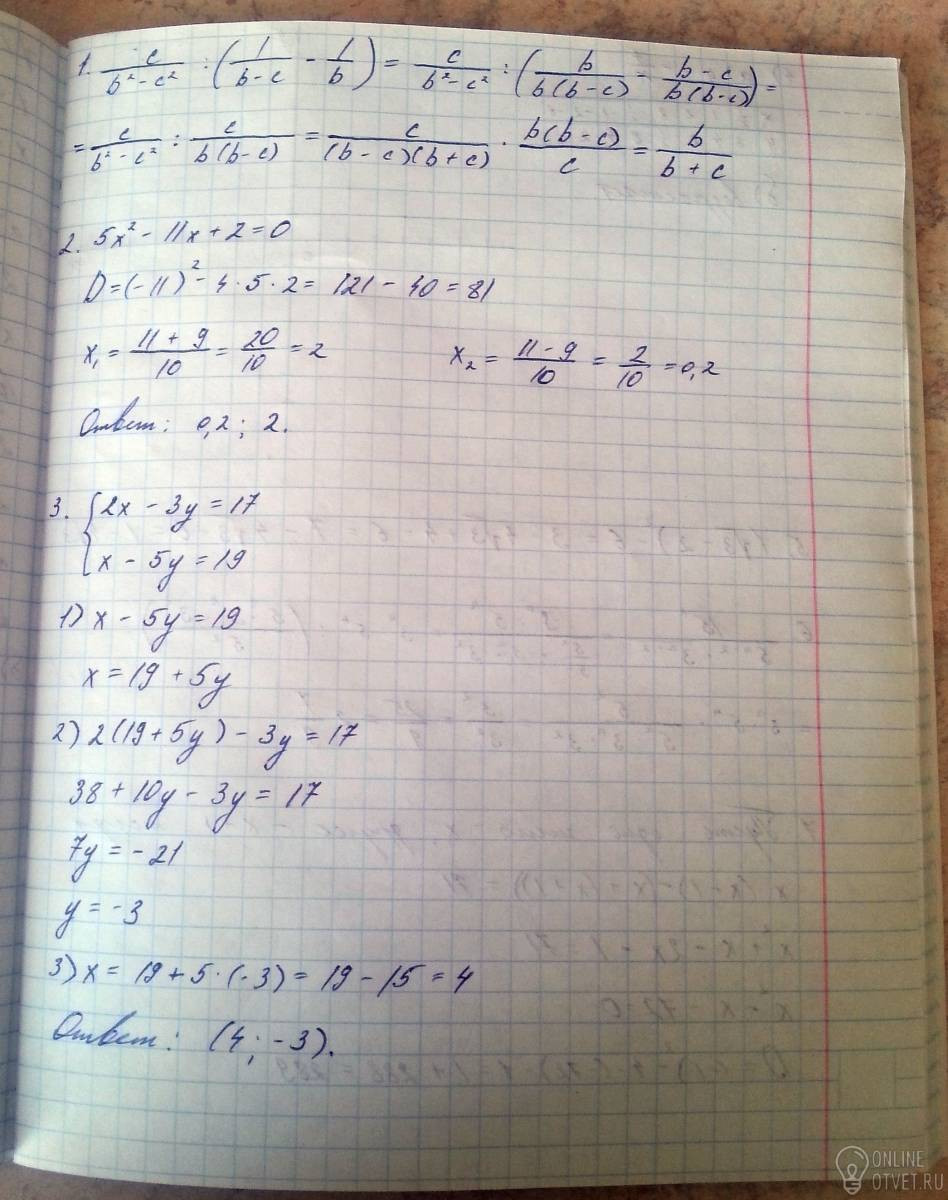 1. c/(b² - c²) : (1/(b - c) - 1/b) = c/(b² - c²) : (b/(b(b - c)) - (b - c)/(b(b - c))) =
= c/(b² - c²) : c/(b(b - c)) = c/((b - c)(b + c)) · b(b - c)/c = b/(b + c)
2. 5x² - 11x + 2 = 0
D = (-11)² - 4 · 5 · 2 = 121 - 40 = 81
x₁ = (11 + 9)/10 = 20/10 = 2 x₂ = (11 - 9)/10 = 2/10 = 0,2
Ответ: 0,2; 2.
3. { 2x - 3y = 17
x - 5y = 19
1) x - 5y = 19
x = 19 + 5y
2) 2(19 + 5y) - 3y = 17
38 + 10y - 3y = 17
7y = -21
y = -3
3) x = 19 + 5 · (-3) = 19 - 15 = 4
Ответ: (4; -3).
ONLINE
OTVET.RU